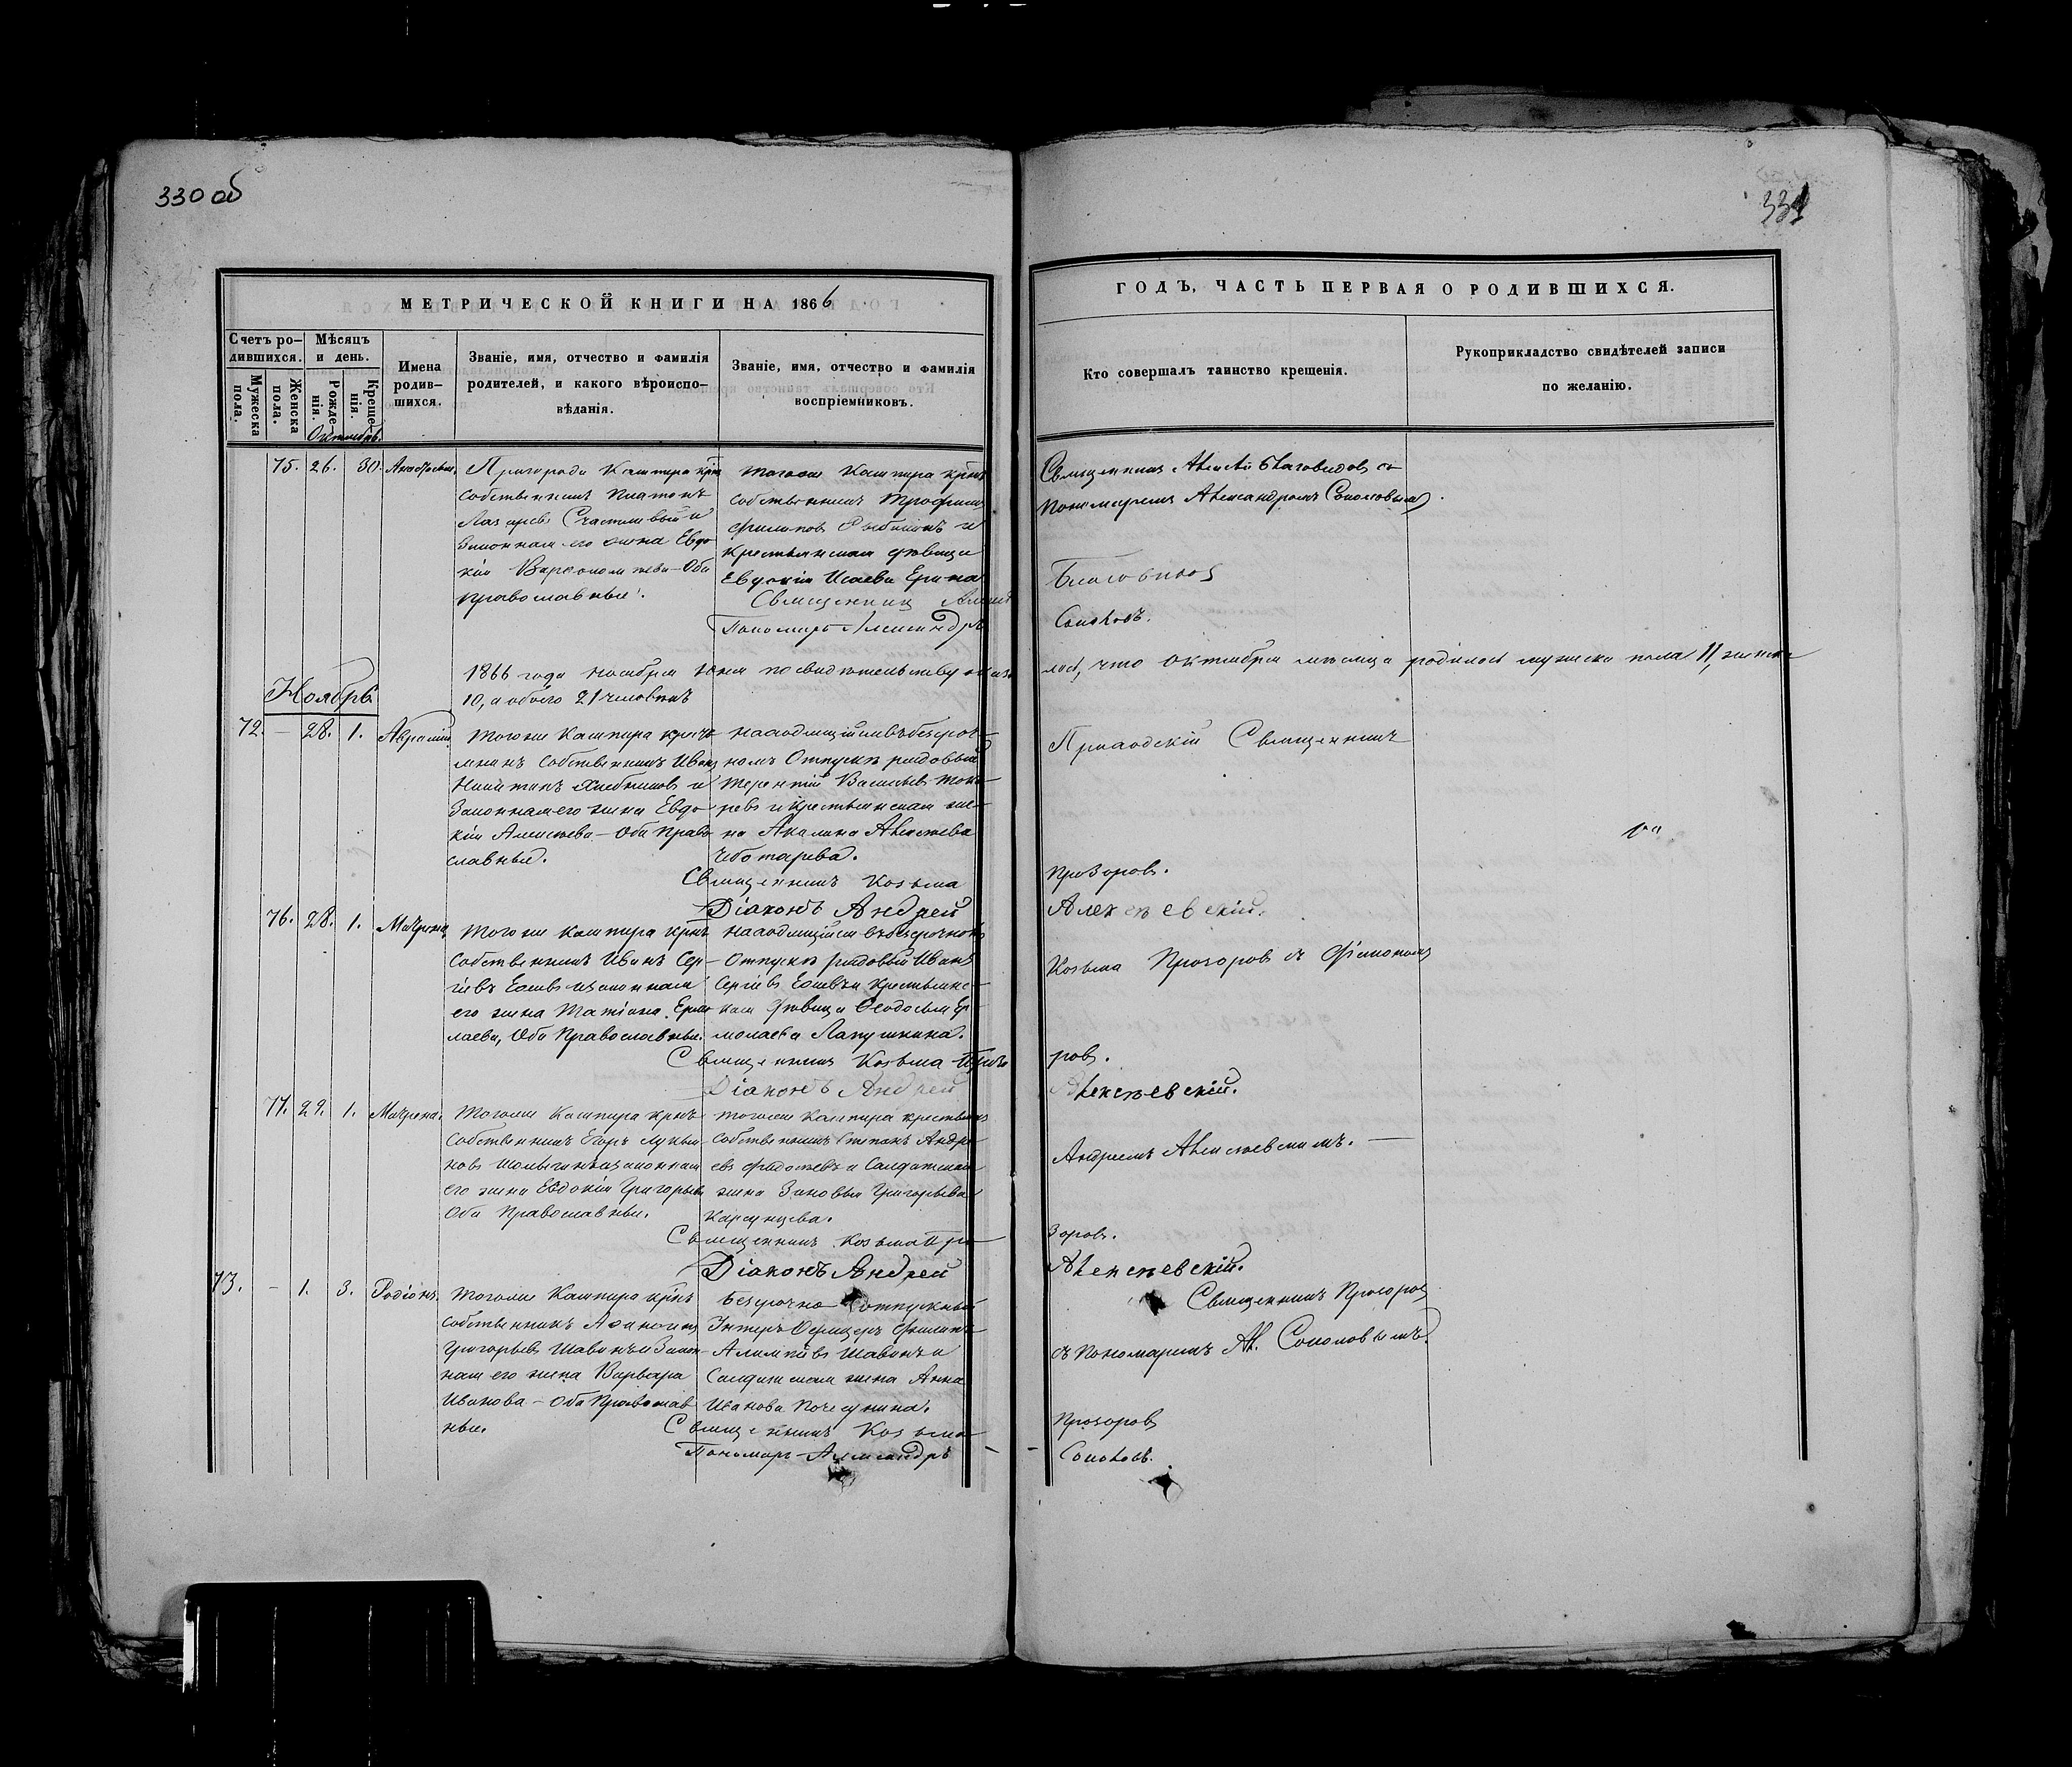 330 об
331
МЕТРИЧЕСКОЙ КНИГИ НА 1866
ГОДЪ, ЧАСТЬ ПЕРВАЯ О РОДИВШИХСЯ.
Счетъ ро-
дившихся.
Мужеска пола.
Женска пола.
Мѣсяцъ
и день.
Рожде-
нія.
Креще-
нія.
Имена
родив-
шихся.
Званіе, имя, отчество и фамилія
родителей, и какого вѣроиспо-
вѣданія.
Званіе, имя, отчество и фамилія
воспріемниковъ.
Кто совершалъ таинство крещенія.
Рукоприкладство свидѣтелей записи
по желанію.
Октябрь.
75. 26. 30.
Пригорода Кашпира крнъ
собственникъ Платонъ
Лазаревъ Счастливый и
Законная его жена Евдо
кія Варѳоломѣева - Оба
православные.
Тогоже Кашпира крнъ
собственникъ Трофимъ
Филиповъ и
крестьянская дѣвица
Евдокія Исаева
Священникъ
Пономарь Александръ
Священникъ Алексѣй Благовидовъ со
Пономаремъ Александромъ Соколовымъ.
Благовидовъ
Соколовъ.
1866 года Ноября дня по свидѣтельству оказа
лось, что Октября мѣсяца родилось мужска пола 11, женска
10, а обоего 21 человѣкъ
Ноябрь
72. - 28. 1. Аврамій.
Тогоже Кашпира кресть
янинъ Собственникъ Иванъ
Никитинъ Хлебниковъ и
Законная его жена Евдо-
кія Алексѣева - Оба Право
славные.
находящійся въ безсроч-
номъ Отпуску рядовый
Терентій Васильевъ Тока-
ревъ и крестьянская же-
на Акилина Алексѣева
Чеботарева.
Священникъ Козьма
Діаконъ Андрей
Приходскій Священникъ
Прозоровъ.
Алексѣевскій.
76. 28. 1. Матрена
Тогоже Кашпира крнъ
Собственникъ Иванъ Сер-
гіевъ и законная
его жена Татіана Ермо
лаева, Оба Православные.
находящійся въ безсрочномъ
Отпуску рядовый Иванъ
Сергіевъ и крестьянс-
кая дѣвица Ѳеодосья Ер-
молаева Лапушкина.
Священникъ Козьма Прозо
Діаконъ Андрей
Козьма Прозоровъ съ Діакономъ
ровъ.
Алексѣевскій.
77. 29. 1. Матрена.
Тогоже Кашпира крнъ
Собственникъ Егоръ Лукья-
новъ и законная
его жена Евдокія Григорьева
Оба Православные.
Тогоже Кашпира крестьянинъ
собственникъ Степанъ Андре-
евъ и Солдатская
жена Зиновья Григорьева
Священникъ Козьма Про
Діаконъ Андрей
Андреемъ Алексѣевскимъ. -
зоровъ.
Алексѣевскій.
73. - 1. 3. Родіонъ.
Тогоже Кашпира крнъ
собственникъ
Григорьевъ Шавинъ и Закон-
ная его жена Варвара
Иванова - Оба Православ
ные.
Безсрочно отпускный
Унтеръ Офицеръ Филипъ
Шавинъ и
Солдатская жена Анна
Иванова
Священникъ Козьма
Пономарь Александръ
Священникъ Прозоровъ
съ Пономаремъ Ал. Соколовымъ.
Прозоровъ
Соколовъ.